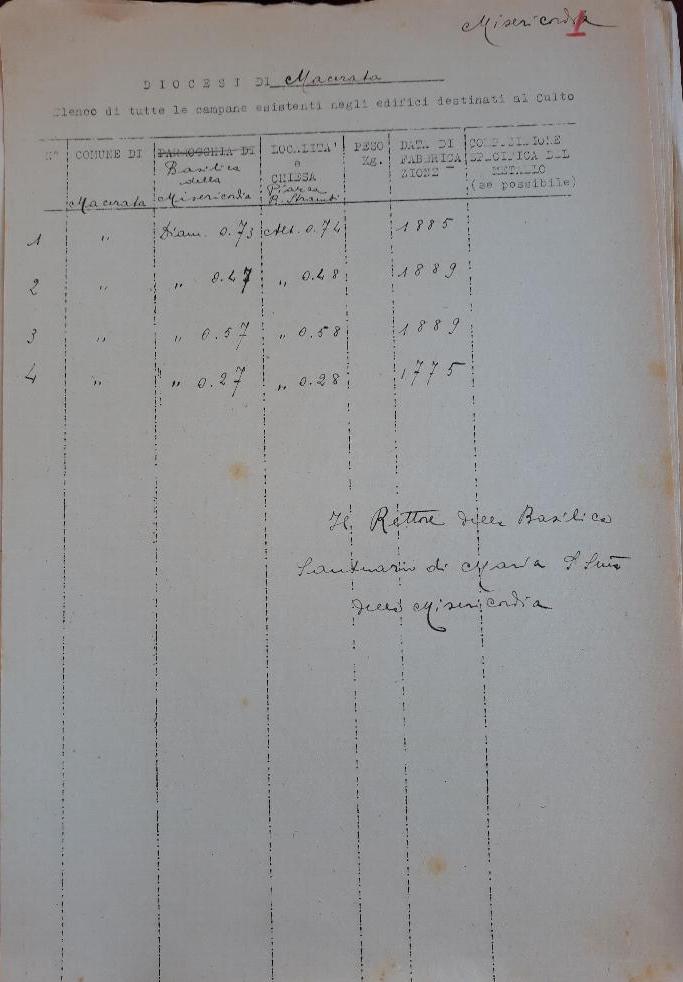 Misericordia 1
DIOCESI DI Macerata
Elenco di tutte le campane esistenti negli edifici destinati al Culto
N° COMUNE DI PARROCCHIA DI LOCALITA' PESO DATA DI COMPOSIZIONE
Basilica e Kg. FABBRICA SPECIFICA DEL
della CHIESA ZIONE METALLO
Piazza (se possibile)
Macerata Misericordia
1 " Diam. 0.73 Alt. 0.74 1885
2 " " 0.47 " 0.48 1889
3 " " 0.57 " 0.58 1889
4 " " 0.27 " 0.28 1775
Il Rettore della Basilica
Santuario di Maria
della Misericordia